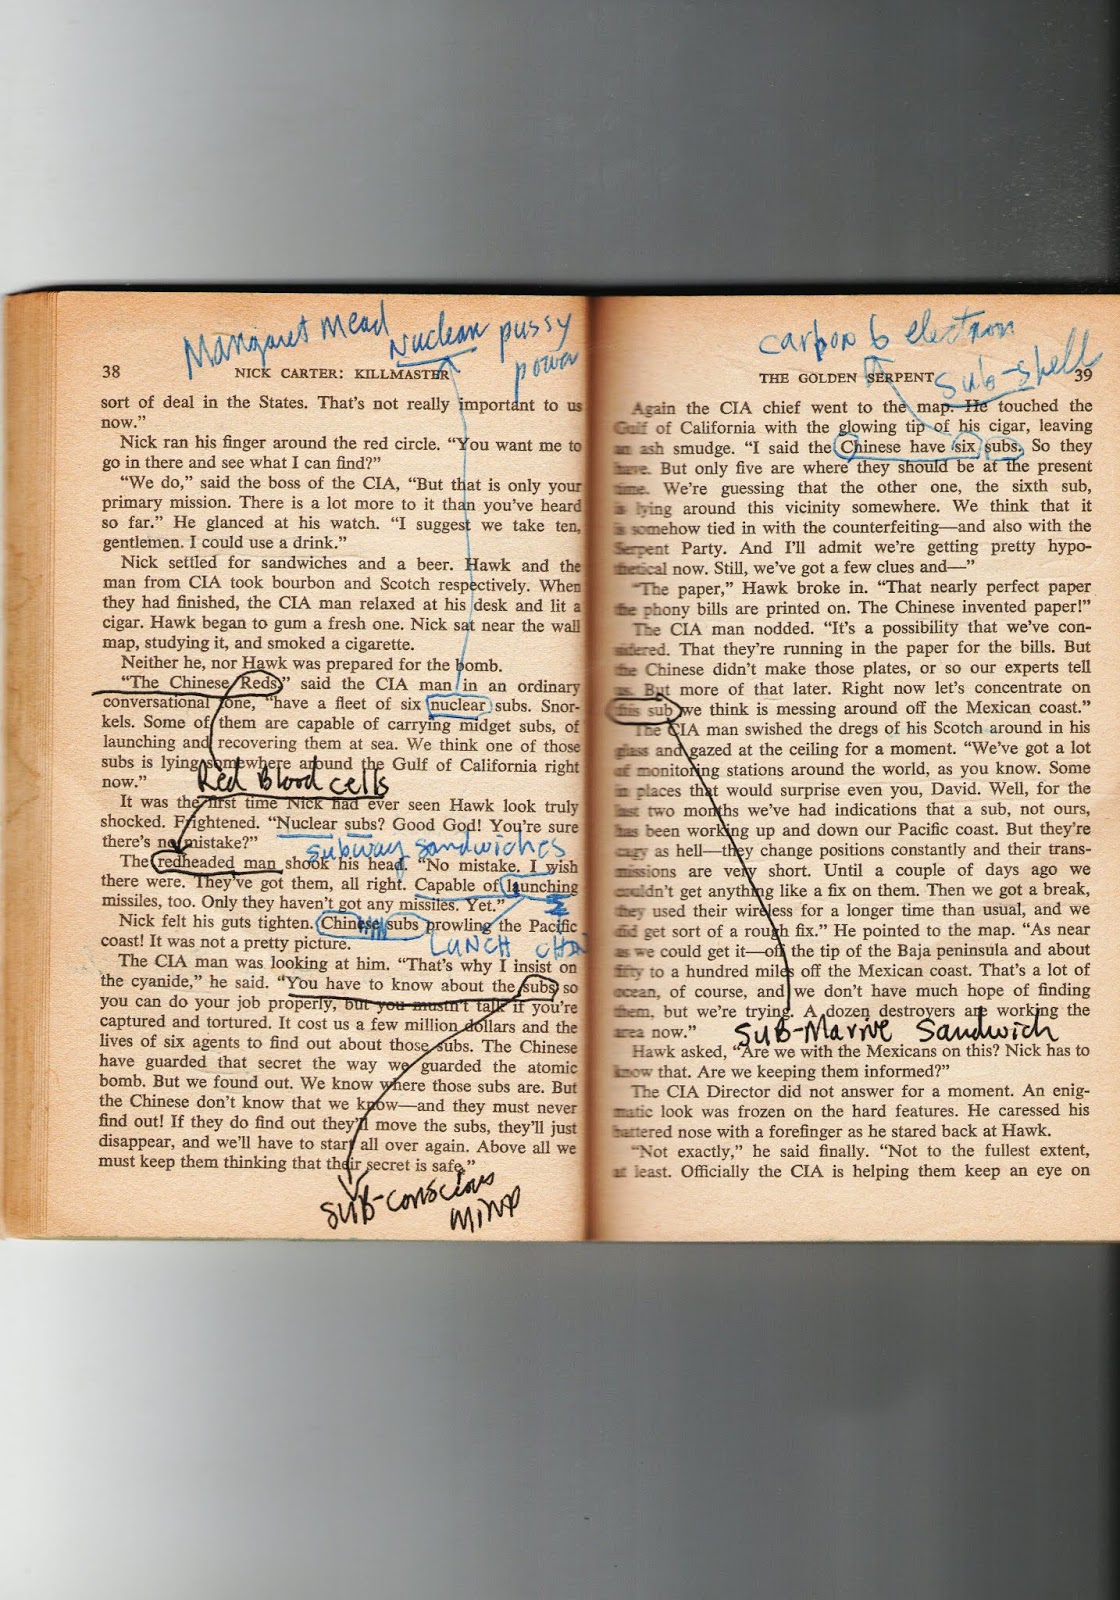 Margaret Mead Nuclear pussy
power
38 NICK CARTER: KILLMASTER
sort of deal in the States. That's not really important to us
now."
Nick ran his finger around the red circle. "You want me to
go in there and see what I can find?"
"We do," said the boss of the CIA, "But that is only your
primary mission. There is a lot more to it than you've heard
so far." He glanced at his watch. "I suggest we take ten,
gentlemen. I could use a drink."
Nick settled for sandwiches and a beer. Hawk and the
man from CIA took bourbon and Scotch respectively. When
they had finished, the CIA man relaxed at his desk and lit a
cigar. Hawk began to gum a fresh one. Nick sat near the wall
map, studying it, and smoked a cigarette.
Neither he, nor Hawk was prepared for the bomb.
"The Chinese Reds," said the CIA man in an ordinary
conversational tone, "have a fleet of six nuclear subs. Snor-
kels. Some of them are capable of carrying midget subs, of
launching and recovering them at sea. We think one of those
subs is lying somewhere around the Gulf of California right
now."
Red Blood cells
It was the first time Nick had ever seen Hawk look truly
shocked. Frightened. "Nuclear subs? Good God! You're sure
there's no mistake?"
subway sandwiches
The redheaded man shook his head. "No mistake. I wish
there were. They've got them, all right. Capable of launching
missiles, too. Only they haven't got any missiles. Yet."
Nick felt his guts tighten. Chinese subs prowling the Pacific
coast! It was not a pretty picture.
LUNCH
The CIA man was looking at him. "That's why I insist on
the cyanide," he said. "You have to know about the subs so
you can do your job properly, but you mustn't talk if you're
captured and tortured. It cost us a few million dollars and the
lives of six agents to find out about those subs. The Chinese
have guarded that secret the way we guarded the atomic
bomb. But we found out. We know where those subs are. But
the Chinese don't know that we know—and they must never
find out! If they do find out they'll move the subs, they'll just
disappear, and we'll have to start all over again. Above all we
must keep them thinking that their secret is safe."
sub-conscious
mind
carbon 6 electron
sub-shell
THE GOLDEN SERPENT 39
Again the CIA chief went to the map. He touched the
Gulf of California with the glowing tip of his cigar, leaving
an ash smudge. "I said the Chinese have six subs. So they
have. But only five are where they should be at the present
time. We're guessing that the other one, the sixth sub,
is lying around this vicinity somewhere. We think that it
is somehow tied in with the counterfeiting—and also with the
Serpent Party. And I'll admit we're getting pretty hypo-
thetical now. Still, we've got a few clues and—"
"The paper," Hawk broke in. "That nearly perfect paper
the phony bills are printed on. The Chinese invented paper!"
The CIA man nodded. "It's a possibility that we've con-
sidered. That they're running in the paper for the bills. But
the Chinese didn't make those plates, or so our experts tell
us. But more of that later. Right now let's concentrate on
this sub we think is messing around off the Mexican coast."
The CIA man swished the dregs of his Scotch around in his
glass and gazed at the ceiling for a moment. "We've got a lot
of monitoring stations around the world, as you know. Some
in places that would surprise even you, David. Well, for the
last two months we've had indications that a sub, not ours,
has been working up and down our Pacific coast. But they're
cagy as hell—they change positions constantly and their trans-
missions are very short. Until a couple of days ago we
couldn't get anything like a fix on them. Then we got a break,
they used their wireless for a longer time than usual, and we
did get sort of a rough fix." He pointed to the map. "As near
as we could get it—off the tip of the Baja peninsula and about
fifty to a hundred miles off the Mexican coast. That's a lot of
ocean, of course, and we don't have much hope of finding
them, but we're trying. A dozen destroyers are working the
area now."
SUB-Marine Sandwich
Hawk asked, "Are we with the Mexicans on this? Nick has to
know that. Are we keeping them informed?"
The CIA Director did not answer for a moment. An enig-
matic look was frozen on the hard features. He caressed his
battered nose with a forefinger as he stared back at Hawk.
"Not exactly," he said finally. "Not to the fullest extent,
at least. Officially the CIA is helping them keep an eye on